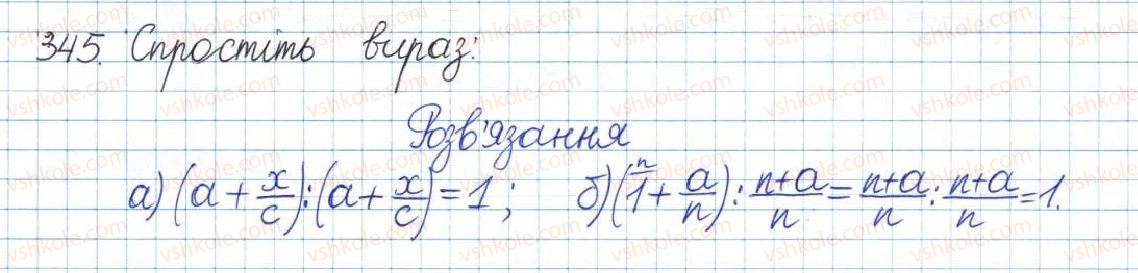 345. Спростіть вираз:
Розв'язання
а) (a + x/c) : (a + x/c) = 1; б) (1ⁿ + a/n) : (n+a)/n = (n+a)/n : (n+a)/n = 1.